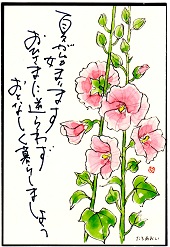 夏が始まります
おひさまに逆らわず
おとなしく暮らしましょう
たちあおい